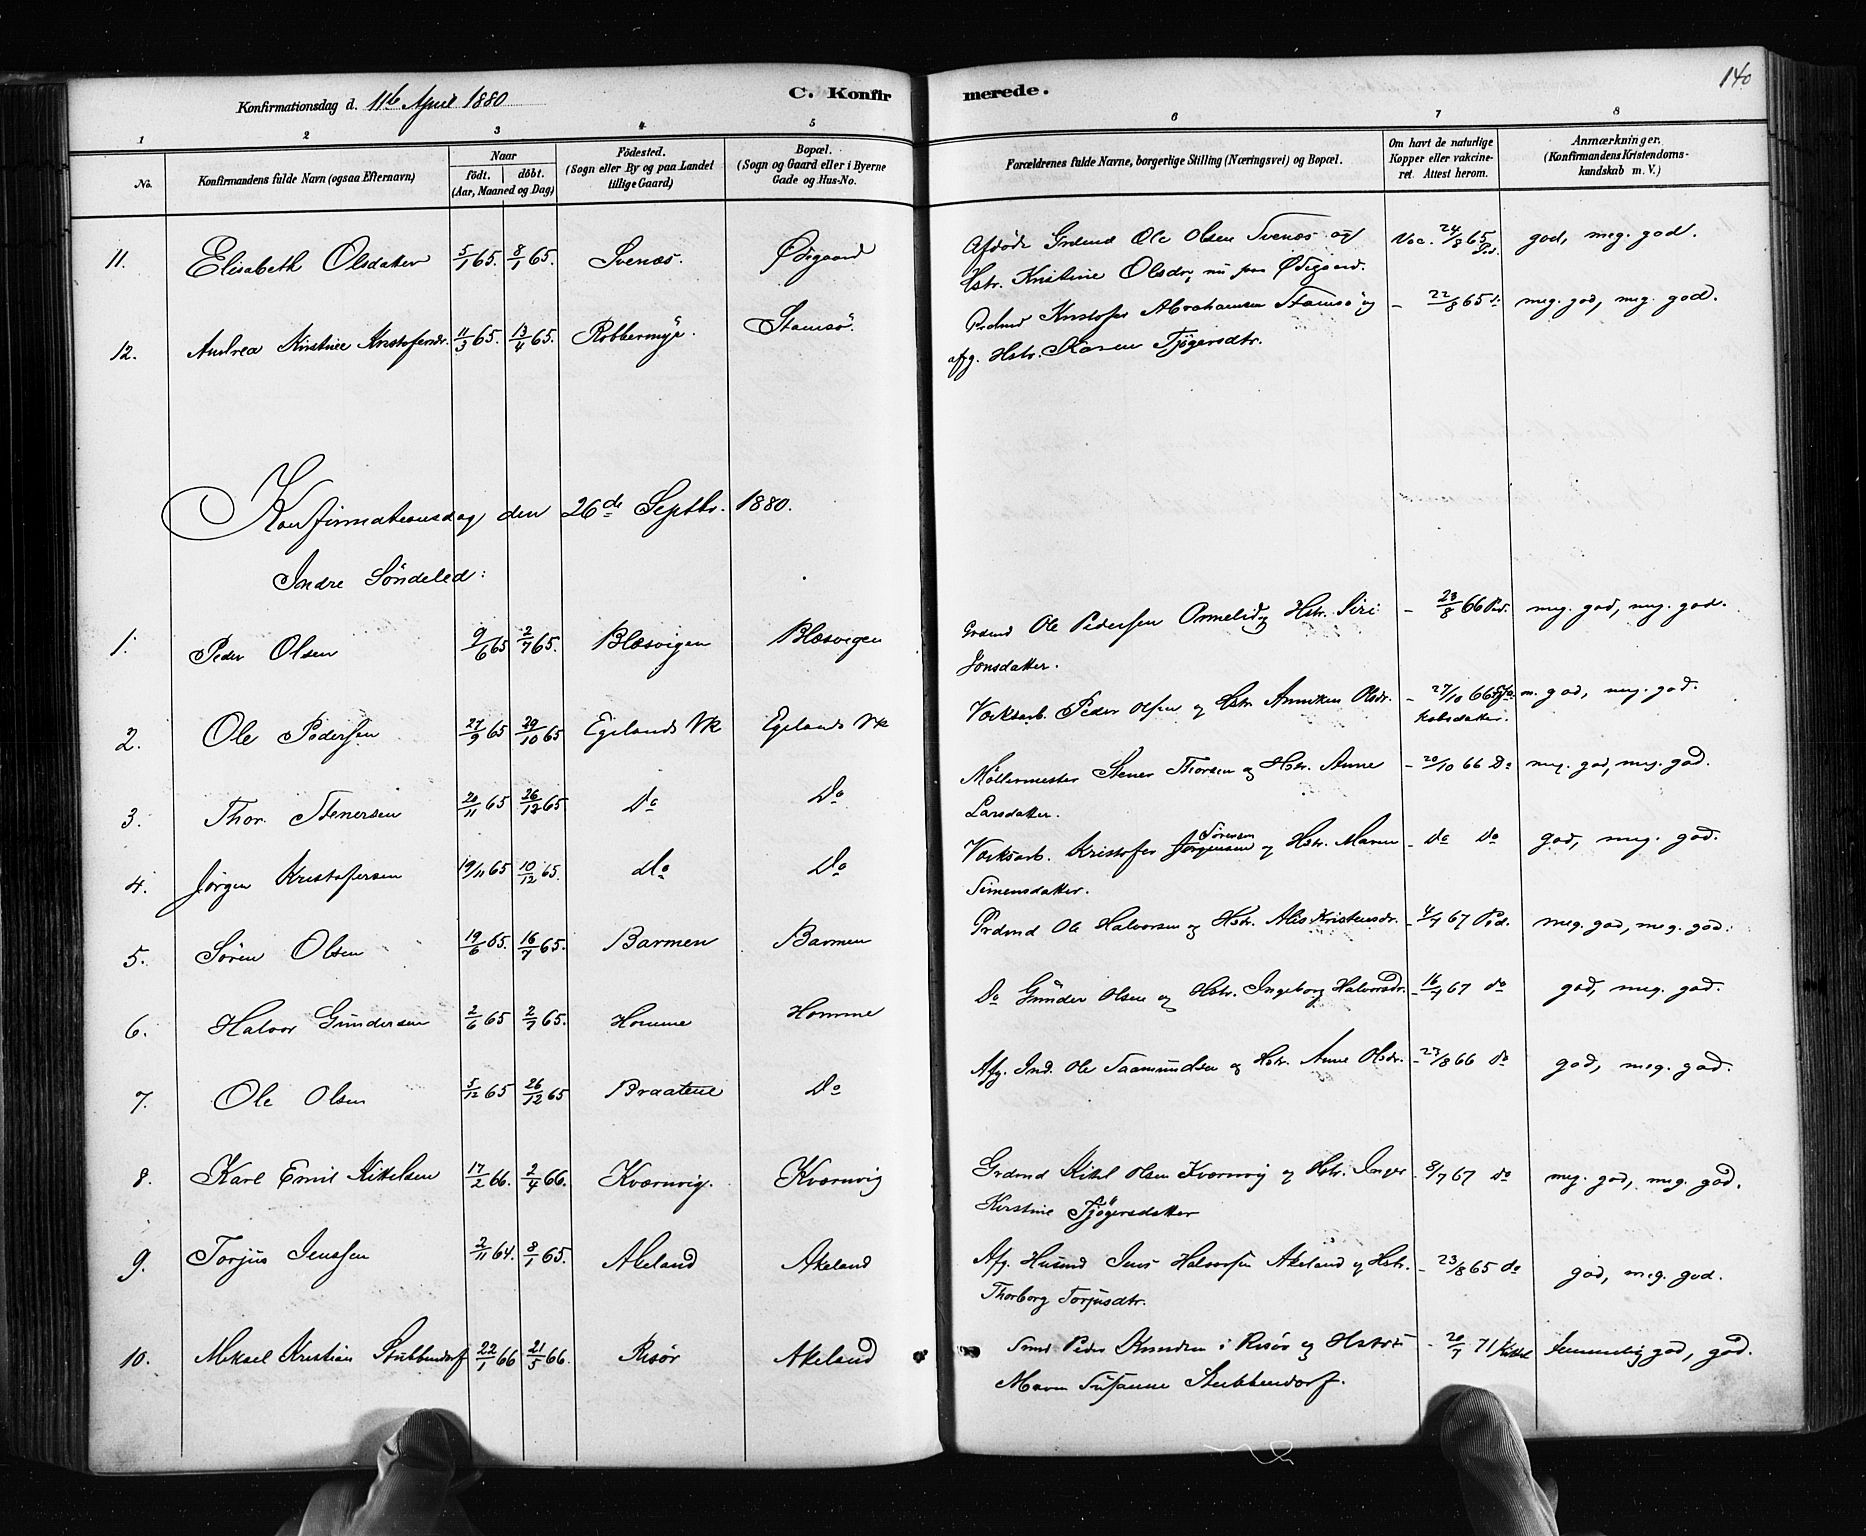 140
Konfirmationsdag d. 11te April 1880
C. Konfir merede.
1 2 3 4 5 6 7 8
No.
Konfirmandens fulde Navn (ogsaa Efternavn)
Naar
født. døbt.
(Aar, Maaned og Dag)
Fødested.
(Sogn eller By og paa Landet
tillige Gaard)
Bopæl.
(Sogn og Gaard eller i Byerne
Gade og Hus-No.
Forældrenes fulde Navne, borgerlige Stilling (Næringsvei) og Bopæl.
Om havt de naturlige
Kopper eller vakcine-
ret. Attest herom.
Anmærkninger.
(Konfirmandens Kristendoms-
kundskab m. V.)
11. Elisabeth Olsdatter 5/1 65. 8/1 65. Svenæs. Ødegaard Afdøde Grdmd Ole Olsen Svenæs og Vac. 24/8 65 Ped. god, meg. god.
Hstr. Kristine Olsdr, nu paa Ødegaard.
12. Andrea Kirstine Kristofersdr. 11/3 65. 13/4 65. Robbermyr. Stamsö. Pedmd Kristofer Abrahamsen Stamsö og – 22/8 65 meg. god, meg. god.
afg. Hstr. Karen Tjøgersdtr.
Konfirmationsdag den 26de Septbr. 1880.
Indre Söndeled:
1. Peder Olsen 9/6 65 2/7 65. Blæsvigen Blæsvigen Grdmd Ole Pedersen Ormelid og Hstr. Siri – 23/8 66 Ped. meg. god, meg. god.
Jonsdatter.
2. Ole Pedersen 27/9 65 29/10 65 Egelands Vk Egelands Vk Værksarb. Peder Olsen og Hstr. Anniken Olsdr. – 27/10 66 m. god, meg. god.
Kobsdatter.
3. Thor Stenersen 20/11 65 26/12 65 Do Do Møllermester Stener Thorsen og Hstr. Anne – 20/10 66 Do meg. god, meg. god.
Larsdatter.
4. Jørgen Kristofersen 19/11 65 10/12 65. do Do Værksarb. Kristofer Jørgensen Sørensen og Hstr. Maren – Do Do god, meg. god.
Simensdatter.
5. Søren Olsen 19/6 65. 16/7 65. Barmen Barmen Grdmd Ole Halvorsen og Hstr. Alis Kristensdr. – 4/7 67 Ped. meg. god, meg. god.
6. Halvor Gundersen 2/6 65 2/7 65. Homme Homme Do Gunder Olsen og Hstr. Ingeborg Halvorsdr. – 16/7 67 do god, meg. god.
7. Ole Olsen 5/12 65 26/12 65 Braatene Do Afg. Ind. Ole Saamundsen og Hstr. Anne Olsdr. – 23/8 66 do god, meg. god.
8. Karl Emil Kittelsen 17/2 66. 2/4 66. Kværnvig. Kværnvig Grdmd Kittel Olsen Kværnvig og Hstr. Inger – 8/7 67 do meg. god, meg. god.
Kirstine Tjøgersdatter
9. Torjus Jenssen 2/11 64. 8/1 65. Akeland Akeland Afg. Husmd Jens Halvorsen Akeland og Hstr. – 23/8 65 do god, meg. god.
Thorborg Torjusdtr.
10. Mikael Kristian Stubbendorf 22/1 66 21/5 66. Risør Akeland Smed Peder Knudsen i Risør og Hstr. – 20/7 71 temmelig god, god.
Maren Susanne Stubbendorf.